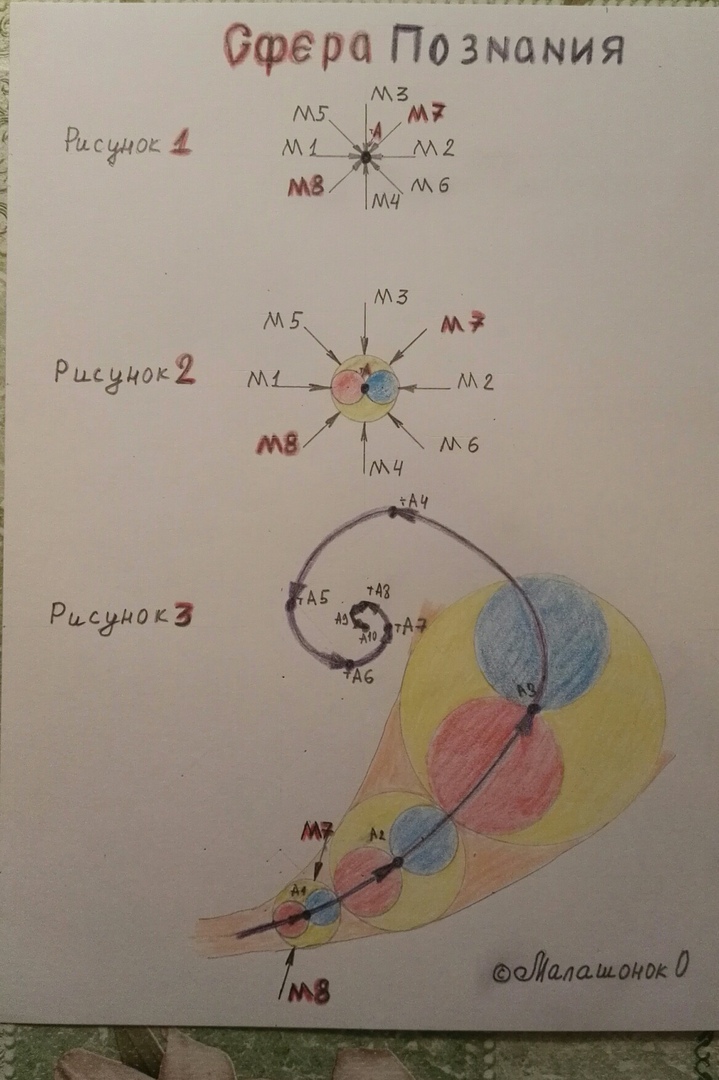 Сфера Познания
Рисунок 1
М3
М5
М7
А
М1
М2
М8
М6
М4
Рисунок 2
М3
М5
М7
А
М1
М2
М8
М6
М4
Рисунок 3
А4
А5
А8
А9
А10
А7
А6
А3
М7
А2
А1
М8
©Малашонок О